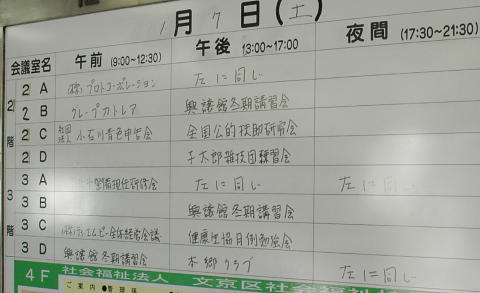 1月7日(土)
会議室名 午前(9:00~12:30) 午後 13:00~17:00) 夜間 (17:30~21:30)
2階
2 A (株)プロトコーポレーション 左に同じ
2 B クレープカトレア 興譲館冬期講習会
2 C 社団法人 小石川青色申告会 全国公的扶助研究会
2 D 子太郎雑技団練習会
3階
3 A 警備担任研修会 左に同じ 左に同じ
3 B 興譲館冬期講習会
3 C 全体経営会議 健康生協月例勉強会
3 D 興譲館冬期講習会 本郷クラブ 左に同じ
4F 社会福祉法人 文京区社会福祉
ご案内